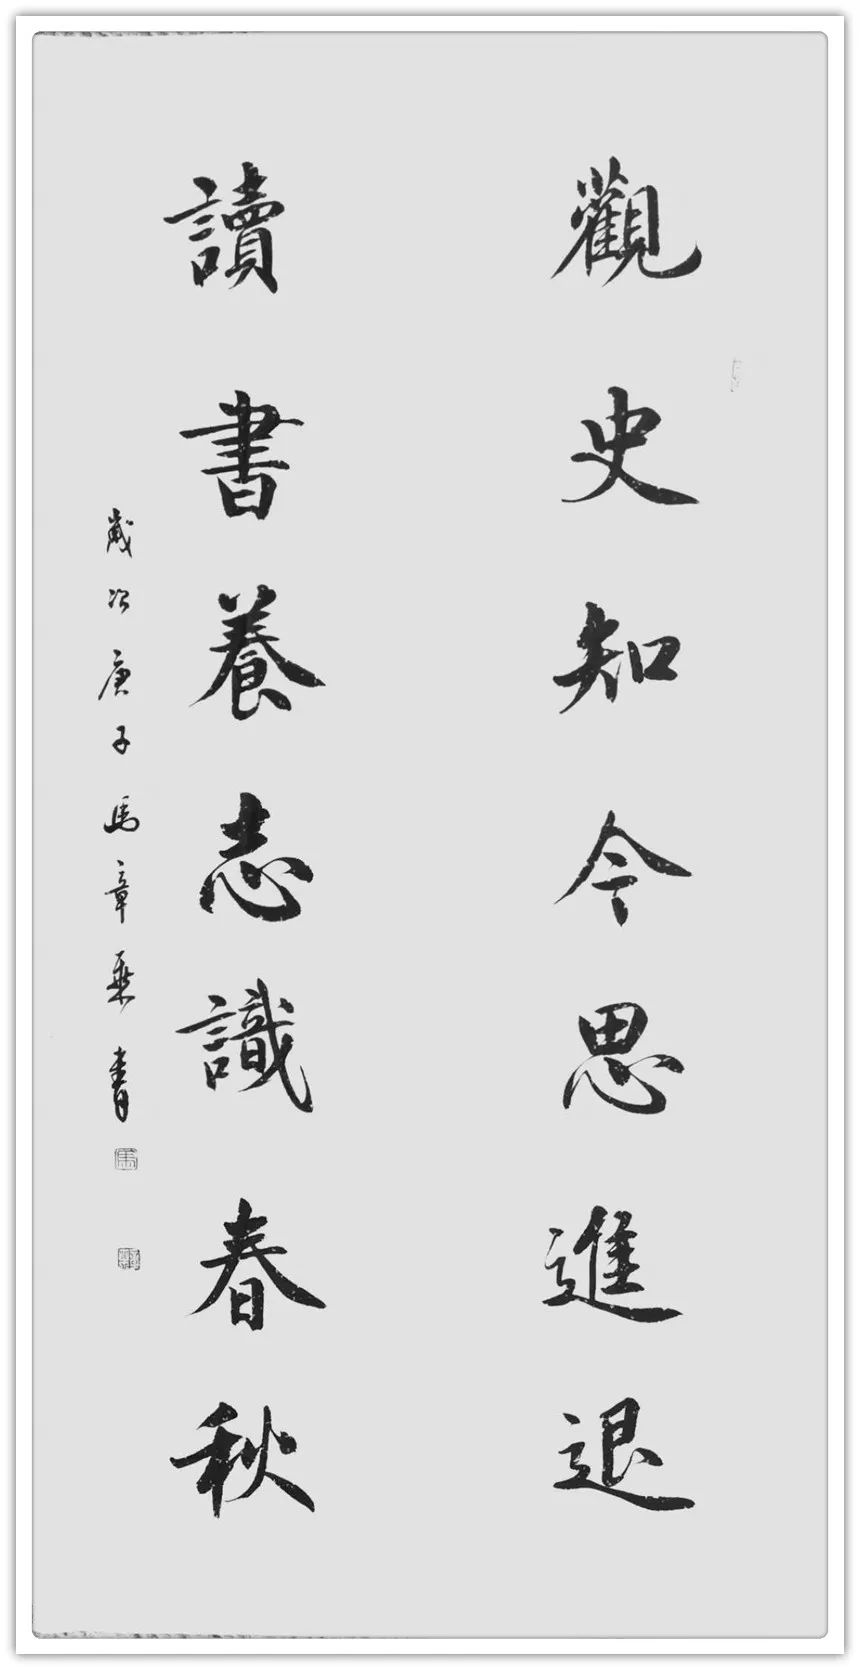 觀史知今思進退
讀書養志識春秋
歲次庚子馬章乘書